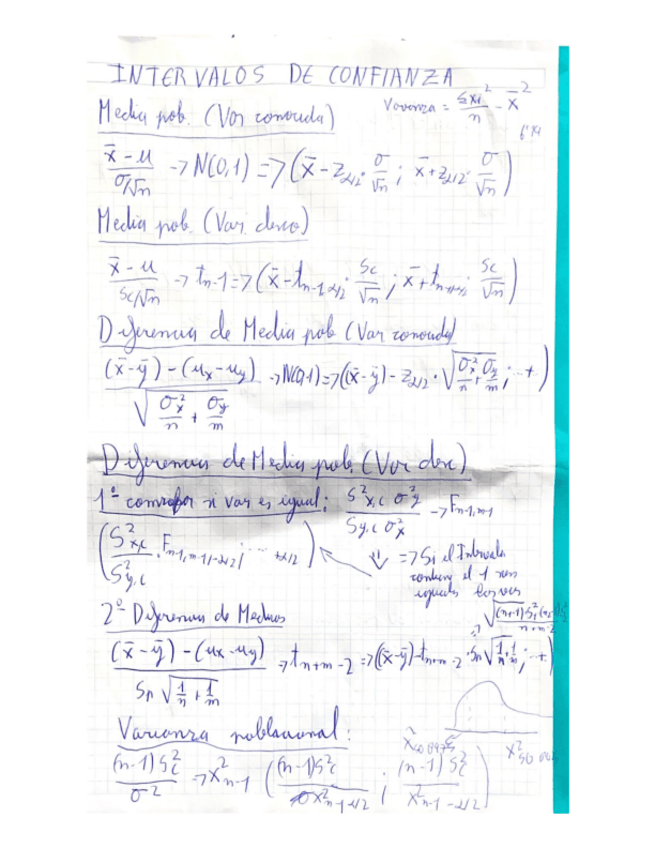 INTERVALOS DE CONFIANZA
Varianza = Σxi²/n - x̄²
Media pob. (Var conocida)
(x̄ - μ)/(σ/√n) → N(0,1) => (x̄ - z_α/2 · σ/√n ; x̄ + z_α/2 · σ/√n)
Media pob. (Var. desco)
(x̄ - μ)/(Sc/√n) → t_n-1 => (x̄ - t_n-1,α/2 · Sc/√n ; x̄ + t_n-1,α/2 · Sc/√n)
Diferencia de Media pob (Var conocida)
((x̄ - ȳ) - (μx - μy))/√(σx²/n + σy/m) → N(0,1) => ((x̄ - ȳ) - z_α/2 · √(σx²/n + σy/m) ; ...+)
Diferencia de Media pob. (Var desc)
1º comprobar si var es igual: S²x,c σ²y / Sy,c σ²x → F n-1, m-1
(S²x,c / S²y,c · F n-1, m-1, 1-α/2 ; ... +α/2)
=> Si el Intervalo
contiene el 1 son
iguales las vars
2º Diferencia de Medias
((x̄ - ȳ) - (μx - μy))/(Sp √(1/n + 1/m)) → t n+m-2 => ((x̄ - ȳ) - t n+m-2 · Sp √(1/n + 1/m) ; ...+)
Varianza poblacional:
(n-1)S²c/σ² → X²n-1 ((n-1)S²c / X²n-1 α/2 ; (n-1)S²c / X²n-1 -α/2)